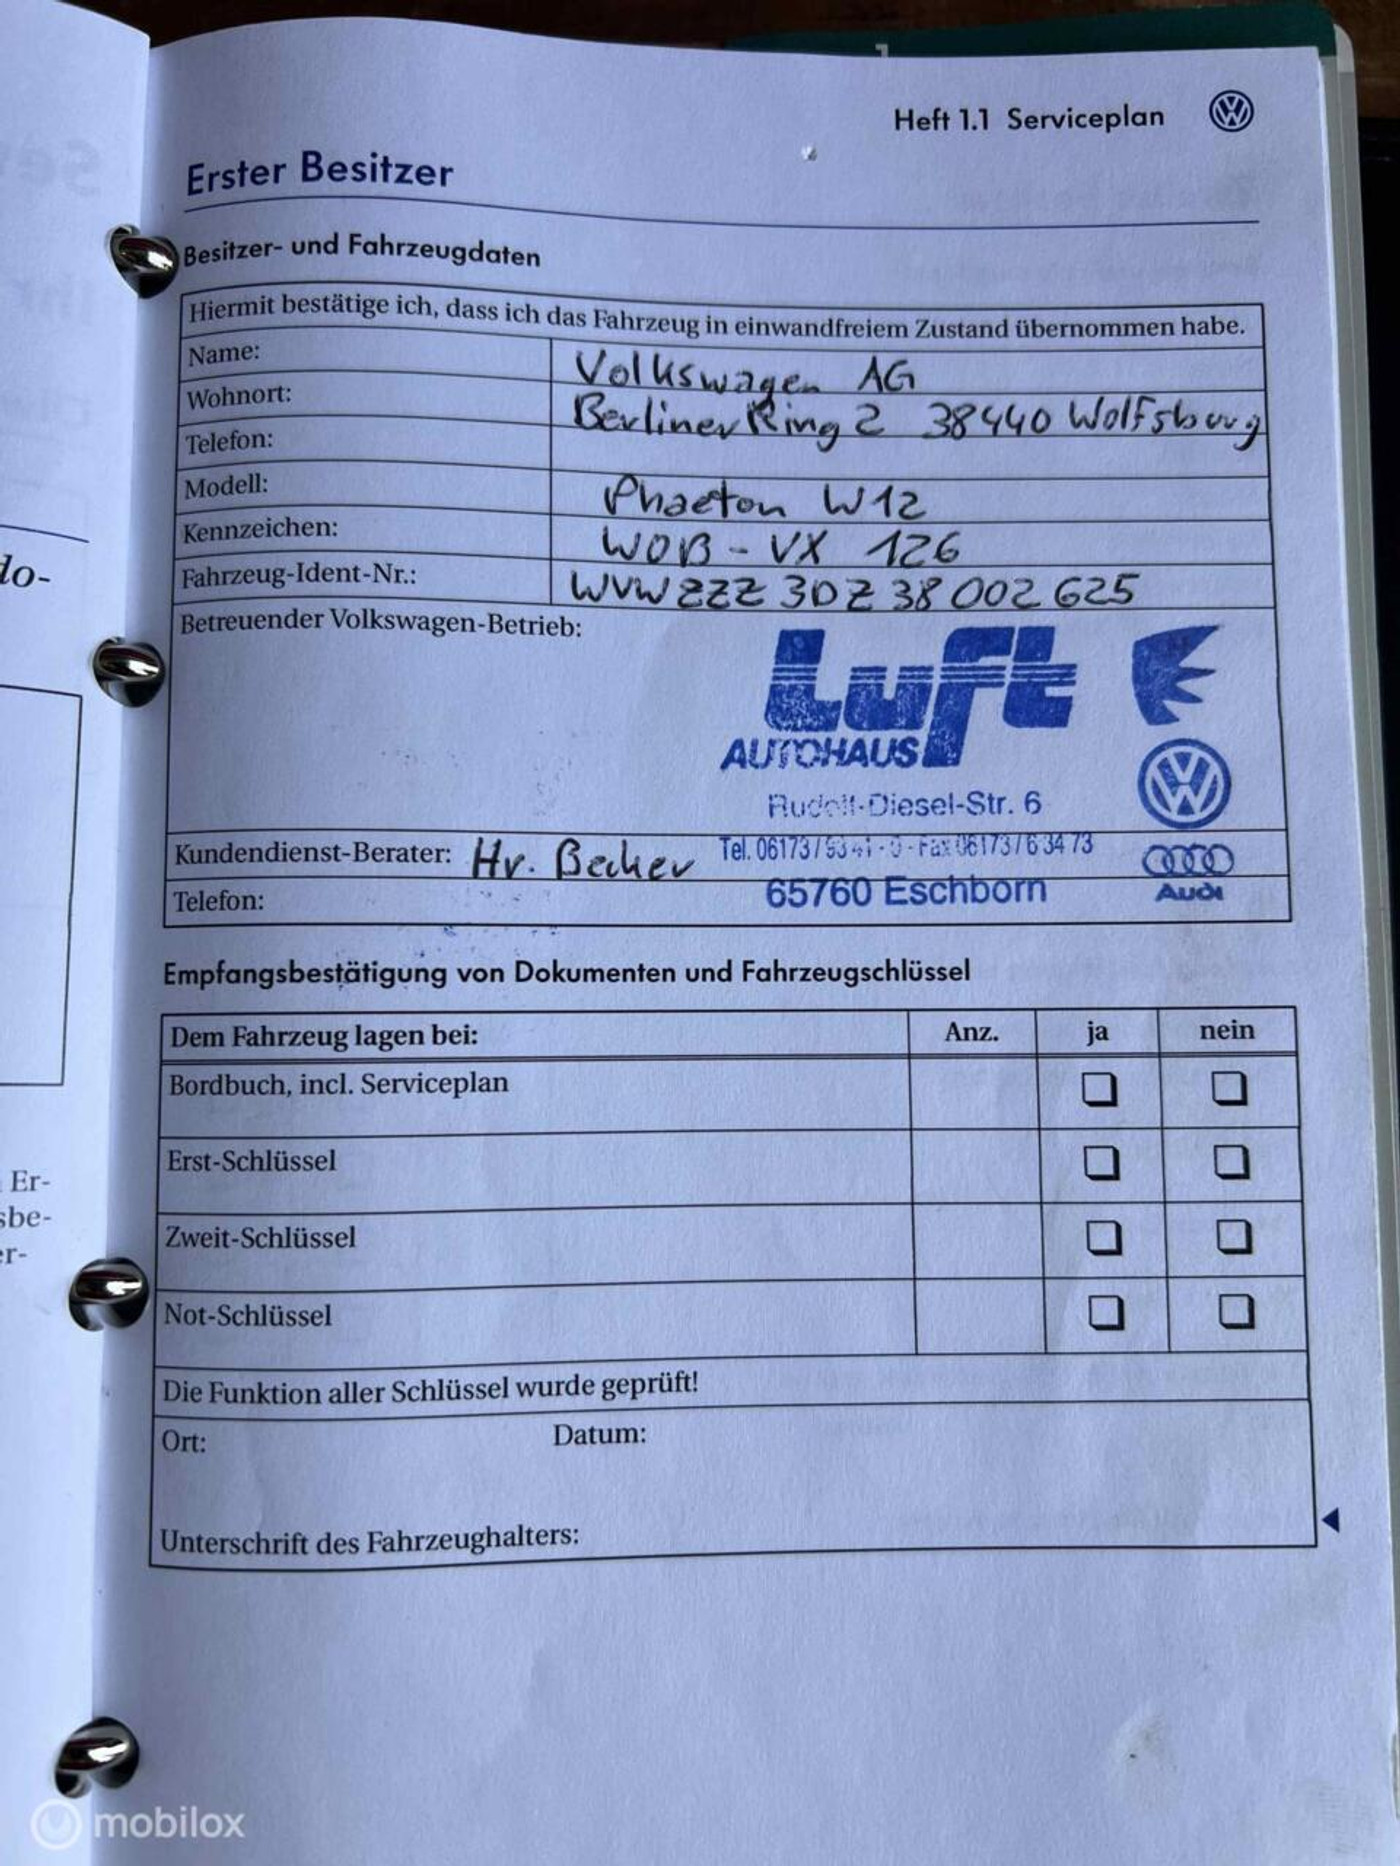 Heft 1.1 Serviceplan
Erster Besitzer
Besitzer- und Fahrzeugdaten
Hiermit bestätige ich, dass ich das Fahrzeug in einwandfreiem Zustand übernommen habe.
Name: Volkswagen AG
Wohnort: Berliner Ring 2 38440 Wolfsburg
Telefon:
Modell: Phaeton W12
Kennzeichen: WOB - VX 126
Fahrzeug-Ident-Nr.: WVWZZZ 3DZ 38 002 625
Betreuender Volkswagen-Betrieb:
Luft
AUTOHAUS
Rudolf-Diesel-Str. 6
Kundendienst-Berater: Hr. Becker
Tel. 06173 / - Fax 06173 / 6 34 73
Telefon:
65760 Eschborn
Audi
Empfangsbestätigung von Dokumenten und Fahrzeugschlüssel
Dem Fahrzeug lagen bei: Anz. ja nein
Bordbuch, incl. Serviceplan
Erst-Schlüssel
Zweit-Schlüssel
Not-Schlüssel
Die Funktion aller Schlüssel wurde geprüft!
Ort: Datum:
Unterschrift des Fahrzeughalters:
do-
Er-
sbe-
er-
mobilox